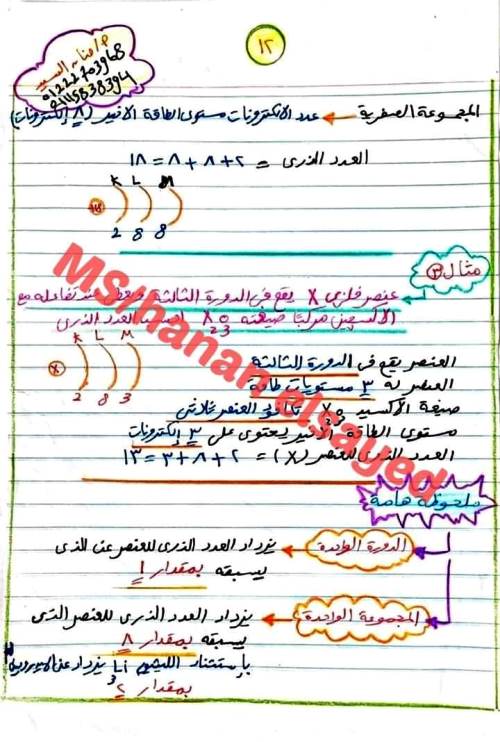 ١٢
م/ هناء السيد
01222703968
01115838394
المجموعة الصفرية ← عدد الالكترونات مستوى الطاقة الأخير (٨ إلكترونات)
العدد الذرى = ٢ + ٨ + ٨ = ١٨
K L M
2 8 8
مثال ٣
عنصر فلزى X يقع فى الدورة الثالثة ويعطى عند تفاعله مع
الأكسجين مركبًا صيغته X2O3 العدد الذرى
K L M
X
2 8 3
العنصر يقع فى الدورة الثالثة
العنصر له ٣ مستويات طاقة
صيغة الأكسيد X2O3 تكافؤ العنصر ثلاثى
مستوى الطاقة الأخير يحتوى على ٣ إلكترونات
العدد الذرى للعنصر (X) = ٢ + ٨ + ٣ = ١٣
ملحوظة هامة
الدورة الواحدة ← يزداد العدد الذرى للعنصر عن الذى
يسبقه بمقدار ١
المجموعة الواحدة ← يزداد العدد الذرى للعنصر الذى
يسبقه بمقدار ٨
بإستثناء الليثيوم 3Li يزداد عن الهيدروجين
بمقدار ٢
MS/hanan elsayed